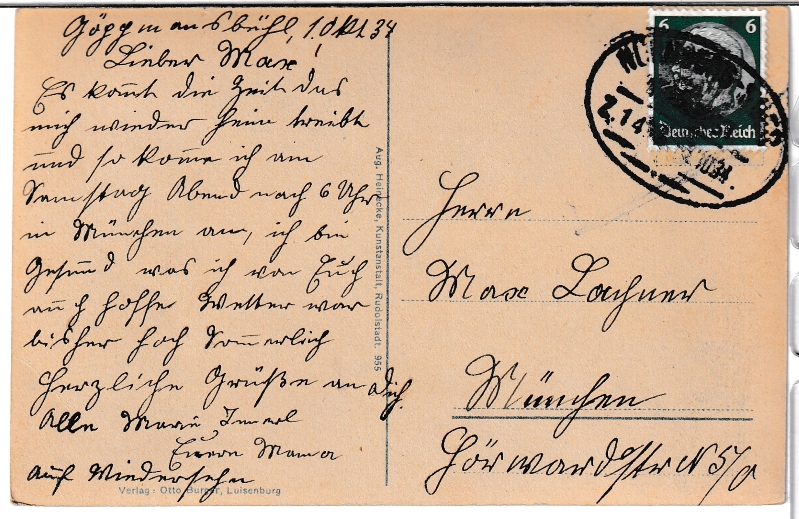 Göpgmansbühl, 1. Okt. 34
Lieber Max!
Es kommt die Zeit das
mich wieder heim treibt
und so komme ich am
Samstag Abend nach 6 Uhr
in München an, ich bin
Gesund was ich von Euch
auch hoffe Wetter war
bisher hoch Sommerlich
Herzliche Grüße an Dich.
Alle Marie
Euere Mama
Auf Wiedersehn
Verlag: Otto Burger, Luisenburg
Aug. Heinecke, Kunstanstalt, Rudolstadt. 955
6 6
Deutsches Reich
Z.14
1034
Herrn
Max Lachner
München
Hörwardstr N 5/0